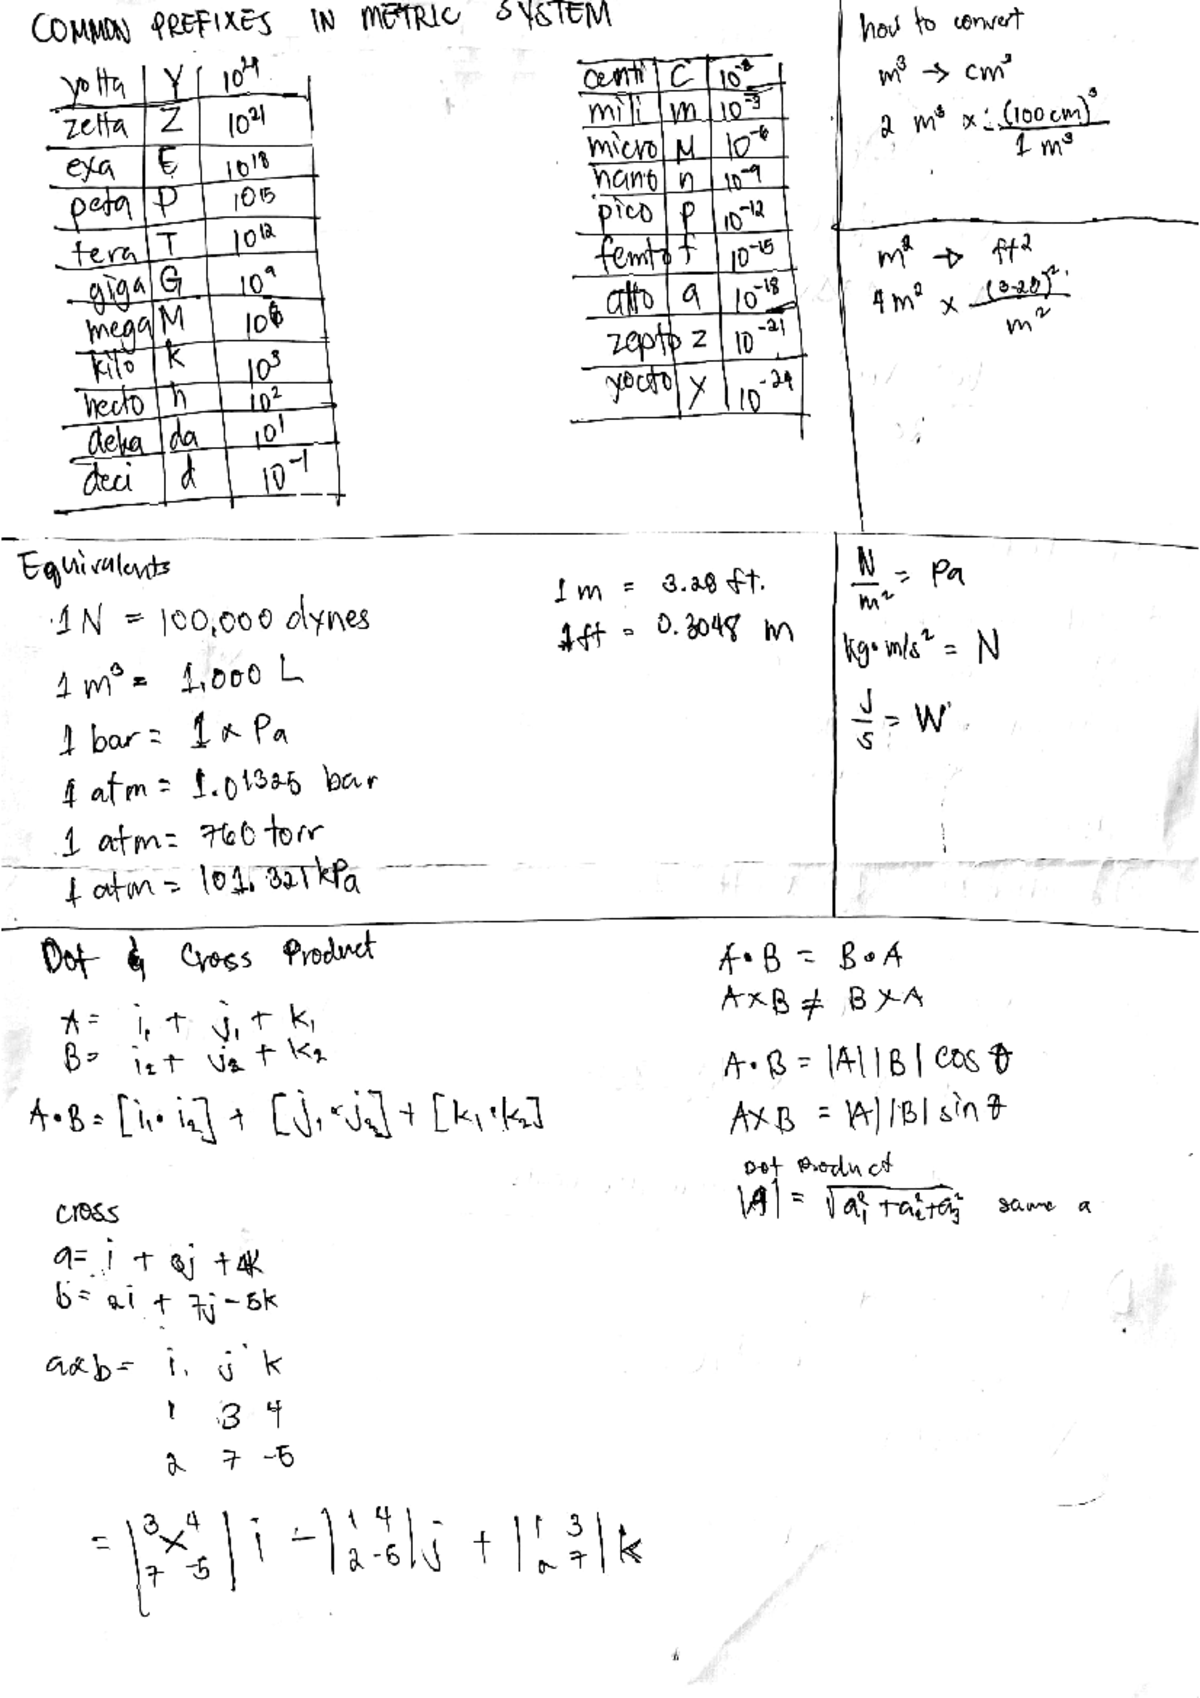 COMMON PREFIXES IN METRIC SYSTEM
yotta Y 10^24
zetta Z 10^21
exa E 10^18
peta P 10^15
tera T 10^12
giga G 10^9
mega M 10^6
kilo k 10^3
hecto h 10^2
deka da 10^1
deci d 10^-1
centi C 10^-2
mili m 10^-3
micro M 10^-6
nano n 10^-9
pico p 10^-12
femto f 10^-15
atto a 10^-18
zepto z 10^-21
yocto y 10^-24
how to convert
m³ → cm³
2 m³ x (100 cm)³ / 1 m³
m² → ft²
4 m² x (3.28)² / m²
Equivalents
1 N = 100,000 dynes
1 m³ = 1,000 L
1 bar = 1 x Pa
1 atm = 1.01325 bar
1 atm = 760 torr
1 atm = 101.325 kPa
1 m = 3.28 ft.
1 ft = 0.3048 m
N/m² = Pa
kg·m/s² = N
J/s = W
Dot & Cross Product
A = i₁ + j₁ + k₁
B = i₂ + j₂ + k₂
A·B = [i₁·i₂] + [j₁·j₂] + [k₁·k₂]
A·B = B·A
A×B ≠ B×A
A·B = |A||B| cos θ
A×B = |A||B| sin θ
Dot Product
|A| = √a₁²+a₂²+a₃² same a
cross
a = i + 3j + 4k
b = 2i + 7j - 5k
a×b = i j k
1 3 4
2 7 -5
= |3 4| i - |1 4| j + |1 3| k
|7 -5| |2 -5| |2 7|